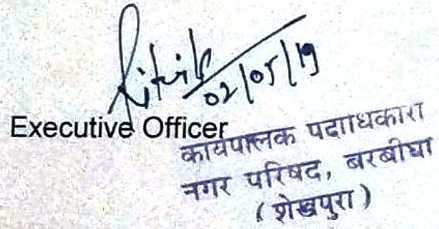 02/05/19
Executive Officer
कार्यपालक पदाधिकारी
नगर परिषद, बरबीघा
(शेखपुरा)